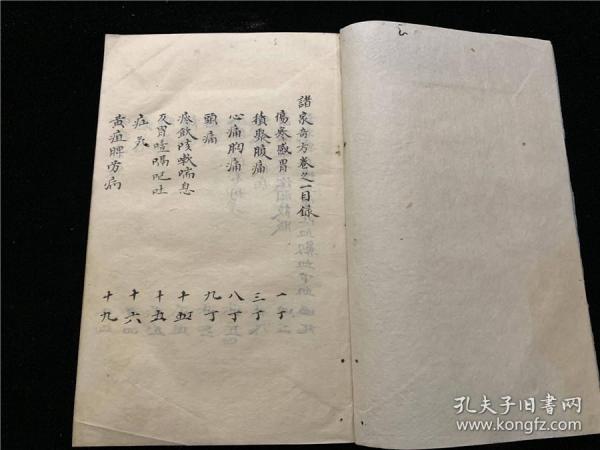 諸家奇方卷之一目錄
傷寒感冒 一丁
積聚腹痛 三丁
心痛胸痛 八丁
頭痛 九丁
痰飲咳嗽喘息 十五
反胃噎嗝呃吐 十五
十六
黄疸脾労病 十九
孔夫子旧书网
www.kongfz.com